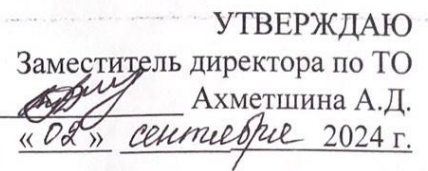 УТВЕРЖДАЮ
Заместитель директора по ТО
Ахметшина А.Д.
« 02 » сентября 2024 г.